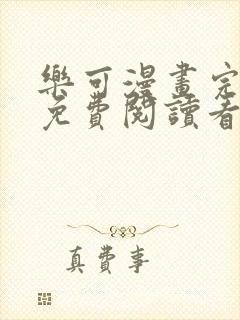 樂可漫畫完
免費閱讀看
真費事